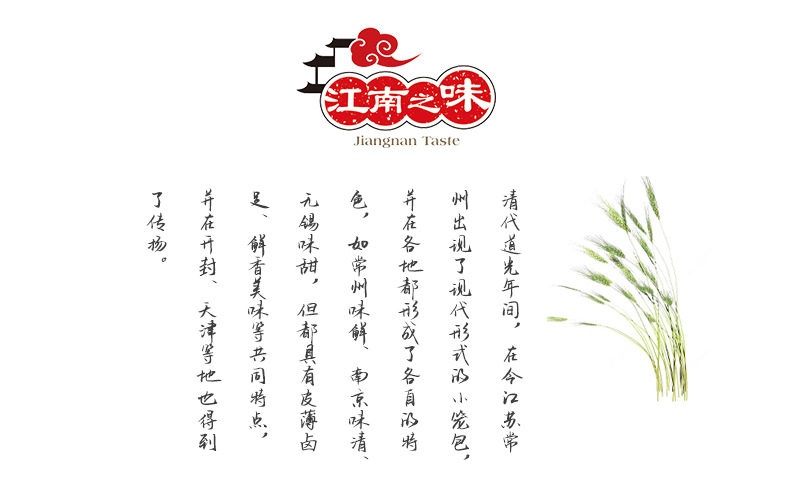 江南之味
Jiangnan Taste
清代道光年间，在今江苏常
州出现了现代形式的小笼包，
并在各地都形成了各自的特
色，如常州味鲜、南京味清、
无锡味甜，但都具有皮薄卤
足、鲜香美味等共同特点，
并在开封、天津等地也得到
了传扬。